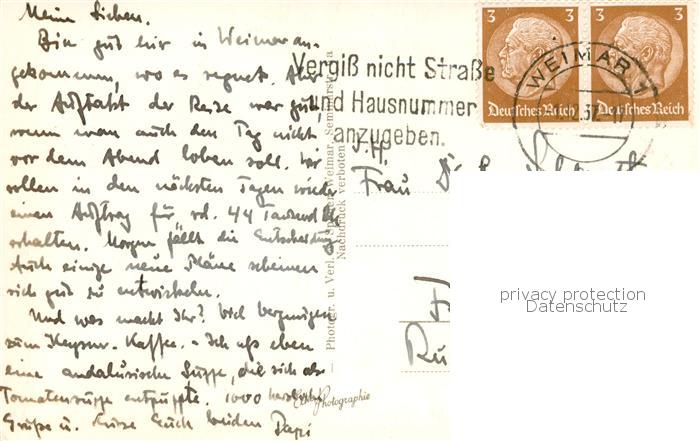 Meine Lieben.
Bin gut hier in Weimar an-
gekommen, wo es regnet. Aber
der Auftakt der Reise war gut,
wenn man auch den Tag nicht
vor dem Abend loben soll. Wir
sollen in den nächsten Tagen wieder
einen Auftrag für rd. 44 Tausend
erhalten. Morgen fällt die Entscheidung
Auch einige neue Pläne scheinen
sich gut zu entwickeln.
Und was macht Ihr? Viel Vergnügen
zum Kaffee. - Ich aß eben
eine andalusische Suppe, die sich als
Tomatensuppe entpuppte. 1000 herzliche
Grüße u. Küsse Euch beiden Papi
3 3
Deutsches Reich
3 3
Deutsches Reich
WEIMAR 1
Vergiß nicht Straße
und Hausnummer
anzugeben.
Photogr. u. Verl. Weimar,
Nachdruck verboten
Frau
Echte Photographie
privacy protection
Datenschutz